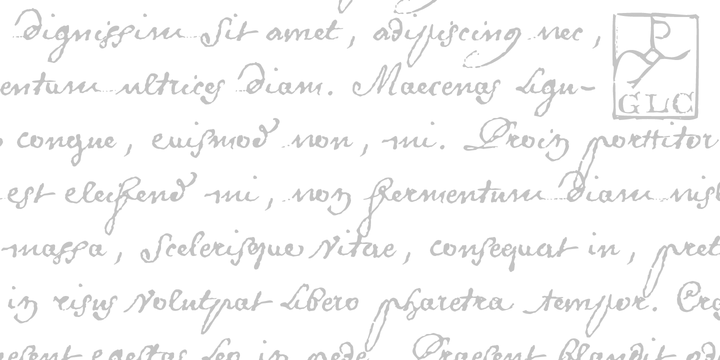 dignissim sit amet, adipiscing nec,
GLC
entum ultrices diam. Maecenas ligu-
congue, euismod non, mi. Proin porttitor
est eleifend mi, non fermentum diam nisl
massa, scelerisque vitae, consequat in, pret
in risus volutpat libero pharetra tempor. Cras
esent egestas leo in pede. Praesent blandit od